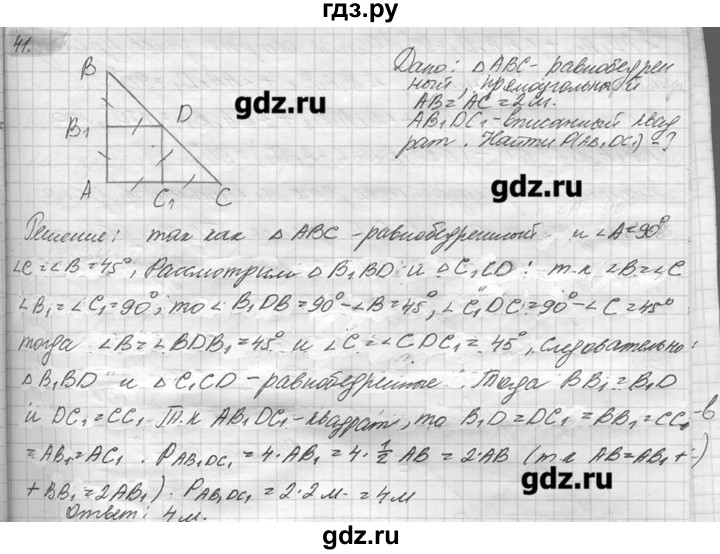 гдз.ру
41.
B
B₁
D
A
C₁
C
Дано: △ABC - равнобедрен
ный, прямоугольный
AB = AC = 2 м.
AB₁DC₁ - вписанный квад
рат. Найти P(AB₁DC₁) - ?
gdz.ru
gdz.ru
Решение: так как △ABC - равнобедренный и ∠A=90°
∠C=∠B=45°, Рассмотрим △B₁BD и △C₁CD: т.к ∠B=∠C
∠B₁=∠C₁=90°, то ∠B₁DB=90°-∠B=45°, ∠C₁DC=90°-∠C=45°
тогда ∠B=∠BDB₁=45° и ∠C=∠CDC₁=45°, Следовательно:
△B₁BD и △C₁CD - равнобедренные. Тогда BB₁=B₁D
и DC₁=CC₁. Т.к AB₁DC₁ - квадрат, то B₁D=DC₁=BB₁=CC₁
=AB₁=AC₁. P AB₁DC₁ = 4·AB₁ = 4·1/2 AB = 2·AB (т.к AB=AB₁+
+BB₁=2AB₁). P AB₁DC₁ = 2·2 м. = 4 м
Ответ: 4 м.
gdz.ru
gdz.ru
gdz.ru